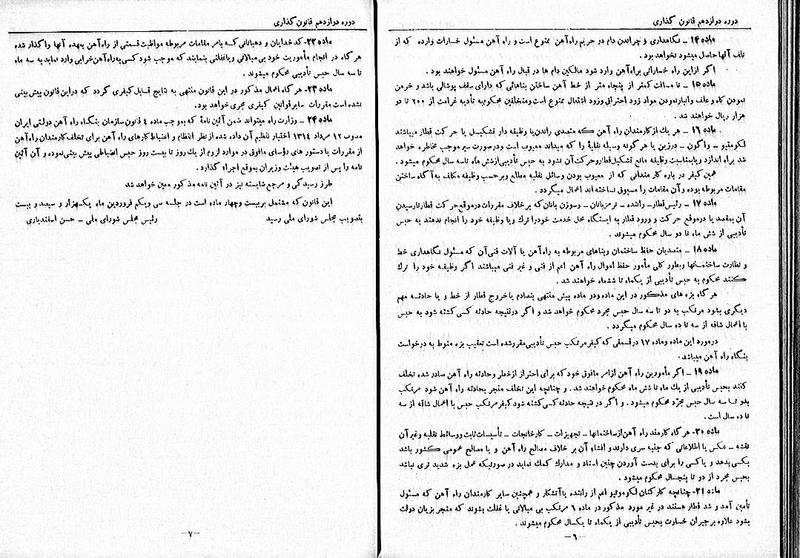 دوره دوازدهم قانون گذاری
ماده ۱۴ – نگاهداری و چراندن دام در حریم راه آهن ممنوع است و راه آهن مسئول خسارات وارده که از
تلف آنها حاصل میشود نخواهد بود.
اگر از این راه خساراتی براه آهن وارد شود مالکین دام ها در قبال راه آهن مسئول خواهند بود.
ماده ۱۵ – تا مسافت کمتر از پنجاه متر از خط آهن ساختن بناهائی که دارای سقف پوشالی باشد و خرمن
نمودن کاه و علف و انبار نمودن مواد زود احتراق وزود اشتعال ممنوع است ومتخلفین محکوم به تأدیه غرامت از ۲۰۰ تا دو
هزار ریال خواهند شد.
ماده ۱۶ – هر یک از کارمندان راه آهن که متصدی راندن یا وظیفه دار تشکیل یا حرکت قطار میباشند
لکوموتیو – واگون – درزین یا هر گونه وسیله نقلیهٔ را که میداند معیوب است و در صورت سیر موجب مخاطره خواهد
شد براه اندازد و یا بمناسبت وظیفه مانع تشکیل قطار وحرکت آن نشود به حبس تأدیبی از شش ماه تا سه سال محکوم میشود.
همین کیفر در باره کار مندانی که از معیوب بودن وسائل نقلیه مطلع و بر حسب وظیفه مکلف به آگاه ساختن
مقامات مربوطه بوده و آن مقامات را مسبوق نساخته اند اعمال میگردد.
ماده ۱۷ – رئیس قطار – راننده – ترمزبانان – وسوزن بانان که بر خلاف مقررات در موقع حرکت قطار تا رسیدن
آن بمقصد یا در موقع حرکت و ورود قطار به ایستگاه محل خدمت خود را ترک ویا وظیفه خود را انجام ندهند به حبس
تأدیبی از شش ماه تا دو سال محکوم میشوند.
ماده ۱۸ – متصدیان حفظ ساختمان وبناهای مربوطه به راه آهن یا آلات فنی آن که مسئول نگاهداری خط
و نظارت ساختمانها وبطور کلی مأمور حفظ اموال راه آهن اعم از فنی و غیر فنی میباشند اگر وظیفه خود را ترک
کنند به حبس تأدیبی از یکماه تا ششماه محکوم خواهند شد.
هر گاه بزه های مذکور در این ماده ودو ماده پیش منتهی بتصادم یاخروج قطار از خط و یا حادثه مهم
دیگری بشود مرتکب به دو تا سه سال حبس مجرد محکوم خواهد شد و اگر در نتیجه حادثه کسی کشته شود به حبس
با اعمال شاقه از سه تا ده سال محکوم میگردد.
در مورد این ماده وماده ۱۷ در قسمتی که کیفر مرتکب حبس تأدیبی مقرر شده است تعقیب بزه منوط به درخواست
بنگاه راه آهن میباشد.
ماده ۱۹ – اگر مأمورین راه آهن از امر مافوق خود که برای احتراز از خطر وحادثه راه آهن صادر شده تخلف
کنند بحبس تأدیبی از یک ماه تا شش ماه محکوم خواهند شد. و چنانچه این تخلف منجر بحادثه راه آهن شود مرتکب
بدو تا سه سال حبس مجرد محکوم میشود. و اگر در نتیجه حادثه کسی کشته شود کیفر مرتکب حبس با اعمال شاقه از سه
تا ده سال است.
ماده ۲۰ – هر گاه کارمند راه آهن از ساختمانها – تجهیزات – کارخانجات – تأسیسات ثابت و وسائط نقلیه وغیر آن
نقشه – عکس یا اطلاعاتی که جنبه سری دارند و افشاء آن بر خلاف مصالح راه آهن و یا مصالح عمومی کشور باشد
بکسی بدهد و یا کسی را برای بدست آوردن چنین اسناد و مدارک کمک نماید در صورتیکه عمل بزه شدید تری نباشد
بحبس مجرد از دو تا پنجسال محکوم میشود.
ماده ۲۱ – چنانچه کارکنان لکوموتیو اعم از راننده یا آتشکار و همچنین سایر کارمندان راه آهن که مسئول
تأمین آمد و شد قطار هستند در غیر مورد مذکور در ماده ۶ مرتکب بی مبالاتی یا غفلت بشوند که منجر بزیان دولت
بشود علاوه بر جبران خسارت بحبس تأدیبی از یکماه تا یکسال محکوم میشوند.
–۶–
دوره دوازدهم قانون گذاری
ماده ۲۲– کدخدایان و دهبانانی که بامر مقامات مربوطه مواظبت قسمتی از راه آهن بعهده آنها واگذار شده
هر گاه در انجام مأموریت خود بی مبالاتی وبا غفلتی بنمایند که موجب شود کسی به راه آهن خرابی وارد نماید به سه ماه
تا سه سال حبس تأدیبی محکوم میشوند.
ماده ۲۳– هر گاه اعمال مذکور در این قانون منتهی به نتایج قابل کیفری گردد که در این قانون پیش بینی
نشده است مقررات سایر قوانین کیفری مجری خواهد بود.
ماده ۲۴ – وزارت راه میتواند ضمن آئین نامهٔ که بموجب ماده ۶ قانون سازمان بنگاه راه آهن دولتی ایران
مصوب ۱۲ مرداد ۱۳۱۴ اختیار تنظیم آن داده شده از نظر انتظام و انضباط کارهای راه آهن برای تخلف کارمندان راه آهن
از مقررات یا دستور های رؤسای مافوق در موارد لزوم از یک روز تا بیست روز حبس انضباطی پیش بینی نموده و آن آئین
نامه را پس از تصویب هیئت وزیران بموقع اجرا گذارد.
طرز رسیدگی و مرجع شایسته نیز در آئین نامه مذکور معین خواهد شد
این قانون که مشتمل بر بیست وچهار ماده است در جلسه سی ویکم فروردین ماه یکهزار و سیصد و بیست
بتصویب مجلس شورای ملی رسید
رئیس مجلس شورای ملی – حسن اسفندیاری
–۷–